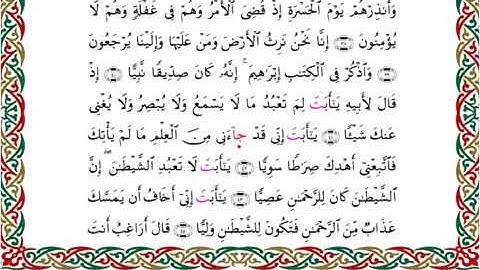 وَأَنذِرْهُمْ يَوْمَ ٱلْحَسْرَةِ إِذْ قُضِىَ ٱلْأَمْرُ وَهُمْ فِى غَفْلَةٍ وَهُمْ لَا
يُؤْمِنُونَ ٣٩ إِنَّا نَحْنُ نَرِثُ ٱلْأَرْضَ وَمَنْ عَلَيْهَا وَإِلَيْنَا يُرْجَعُونَ
٤٠ وَٱذْكُرْ فِى ٱلْكِتَٰبِ إِبْرَٰهِيمَ ۚ إِنَّهُۥ كَانَ صِدِّيقًا نَّبِيًّا ٤١ إِذْ
قَالَ لِأَبِيهِ يَٰٓأَبَتِ لِمَ تَعْبُدُ مَا لَا يَسْمَعُ وَلَا يُبْصِرُ وَلَا يُغْنِى
عَنكَ شَيْـًٔا ٤٢ يَٰٓأَبَتِ إِنِّى قَدْ جَآءَنِى مِنَ ٱلْعِلْمِ مَا لَمْ يَأْتِكَ
فَٱتَّبِعْنِىٓ أَهْدِكَ صِرَٰطًا سَوِيًّا ٤٣ يَٰٓأَبَتِ لَا تَعْبُدِ ٱلشَّيْطَٰنَ ۖ إِنَّ
ٱلشَّيْطَٰنَ كَانَ لِلرَّحْمَٰنِ عَصِيًّا ٤٤ يَٰٓأَبَتِ إِنِّىٓ أَخَافُ أَن يَمَسَّكَ
عَذَابٌ مِّنَ ٱلرَّحْمَٰنِ فَتَكُونَ لِلشَّيْطَٰنِ وَلِيًّا ٤٥ قَالَ أَرَاغِبٌ أَنتَ